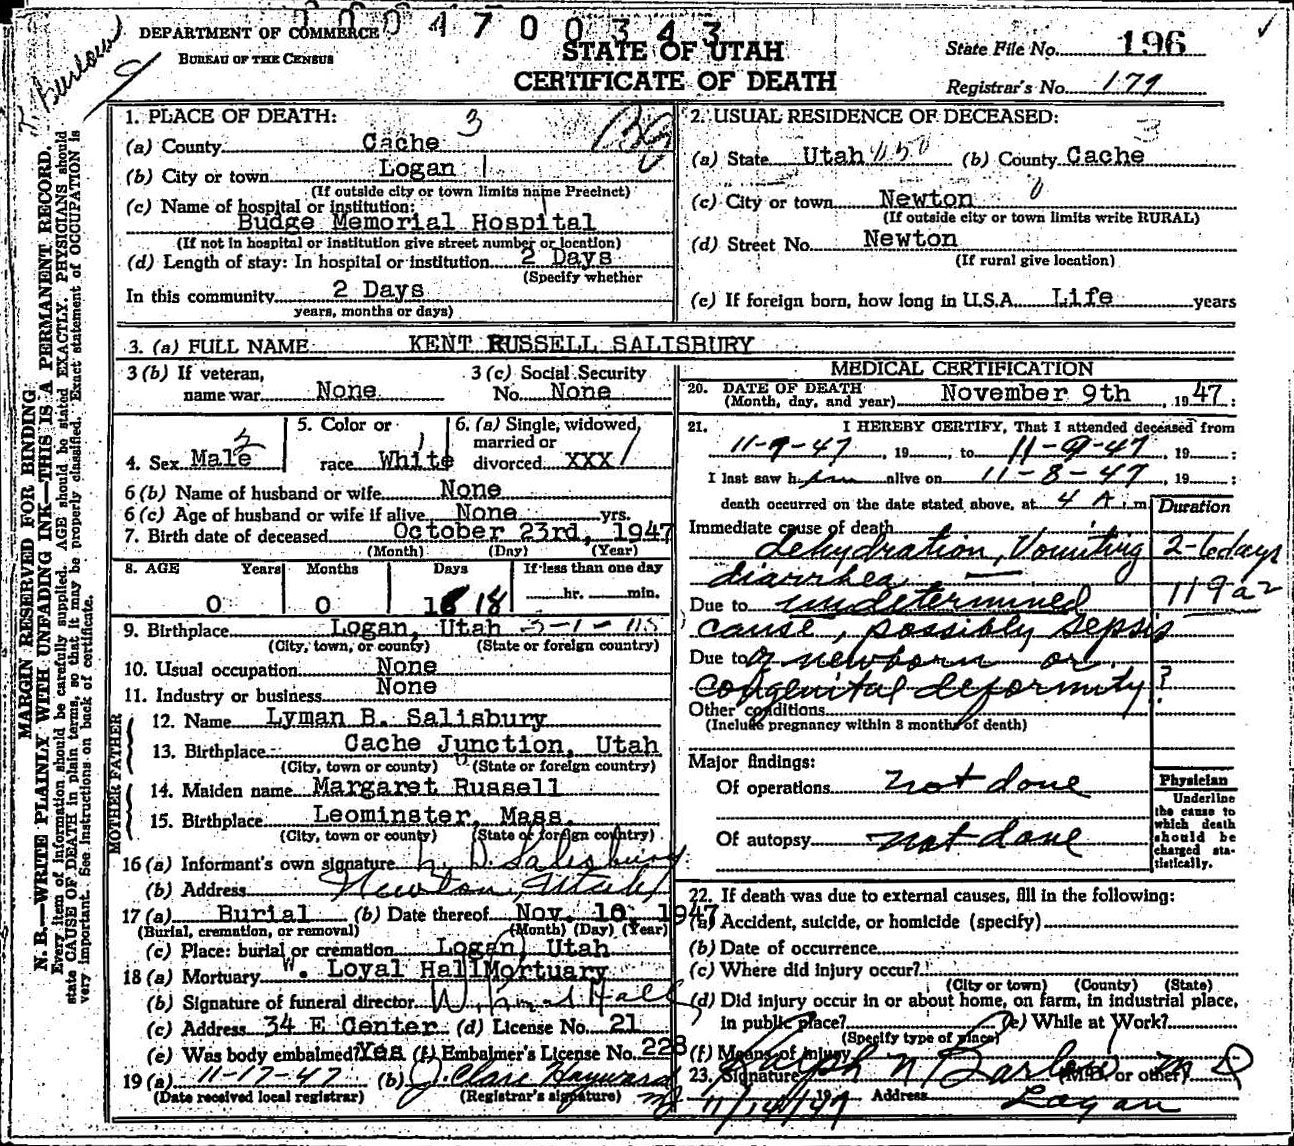 0004700343
DEPARTMENT OF COMMERCE
BUREAU OF THE CENSUS
STATE OF UTAH
CERTIFICATE OF DEATH
State File No. 196
Registrar's No. 179
T. Barlow
MARGIN RESERVED FOR BINDING
N. B.—WRITE PLAINLY WITH UNFADING INK—THIS IS A PERMANENT RECORD.
Every item of information should be carefully supplied. AGE should be stated EXACTLY. PHYSICIANS should
state CAUSE OF DEATH in plain terms, so that it may be properly classified. Exact statement of OCCUPATION is
very important. See instructions on back of certificate.
1. PLACE OF DEATH: 3
(a) County Cache
(b) City or town Logan 1
(If outside city or town limits name Precinct)
(c) Name of hospital or institution:
Budge Memorial Hospital
(If not in hospital or institution give street number or location)
(d) Length of stay: In hospital or institution 2 Days
(Specify whether
In this community 2 Days
years, months or days)
2. USUAL RESIDENCE OF DECEASED: 3
(a) State Utah (b) County Cache
(c) City or town Newton 0
(If outside city or town limits write RURAL)
(d) Street No. Newton
(If rural give location)
(e) If foreign born, how long in U.S.A. Life years
3. (a) FULL NAME KENT RUSSELL SALISBURY
3 (b) If veteran,
name war None
3 (c) Social Security
No. None
4. Sex Male
5. Color or
race White
6. (a) Single, widowed,
married or
divorced XXX
6 (b) Name of husband or wife None
6 (c) Age of husband or wife if alive None yrs.
7. Birth date of deceased October 23rd, 1947
(Month) (Day) (Year)
8. AGE Years Months Days If less than one day
0 0 18 hr. min.
9. Birthplace Logan, Utah
(City, town, or county) (State or foreign country)
10. Usual occupation None
11. Industry or business None
FATHER
12. Name Lyman B. Salisbury
13. Birthplace Cache Junction, Utah
(City, town or county) (State or foreign country)
MOTHER
14. Maiden name Margaret Russell
15. Birthplace Leominster, Mass.
(City, town or county) (State or foreign country)
16 (a) Informant's own signature L. B. Salisbury
(b) Address Newton, Utah
17 (a) Burial (b) Date thereof Nov. 10, 1947
(Burial, cremation, or removal) (Month) (Day) (Year)
(c) Place: burial or cremation Logan, Utah
18 (a) Mortuary W. Loyal Hall Mortuary
(b) Signature of funeral director W. Hall
(c) Address 34 E Center (d) License No. 21
(e) Was body embalmed? Yes (f) Embalmer's License No. 228
19 (a) 11-17-47 (b) J. Clare Hayward
(Date received local registrar) (Registrar's signature)
MEDICAL CERTIFICATION
20. DATE OF DEATH
(Month, day, and year) November 9th, 1947:
21. I HEREBY CERTIFY, That I attended deceased from
11-9-47, 19 , to 11-9-47, 19 :
I last saw him alive on 11-8-47, 19 :
death occurred on the date stated above, at 4 A.m.
Duration
Immediate cause of death
dehydration, Vomiting 2-6 days
diarrhea — 119a2
Due to undetermined
cause, possibly sepsis
Due to of newborn or
congenital deformity?
Other conditions
(Include pregnancy within 3 months of death)
Major findings:
Of operations not done
Of autopsy not done
Physician
Underline
the cause to
which death
should be
charged sta-
tistically.
22. If death was due to external causes, fill in the following:
(a) Accident, suicide, or homicide (specify)
(b) Date of occurrence
(c) Where did injury occur?
(City or town) (County) (State)
(d) Did injury occur in or about home, on farm, in industrial place,
in public place? (e) While at Work?
(Specify type of place)
(f) Means of injury
23. Signature Joseph N Barlow M D
(M.D. or other)
11/14/47 19 Address Logan